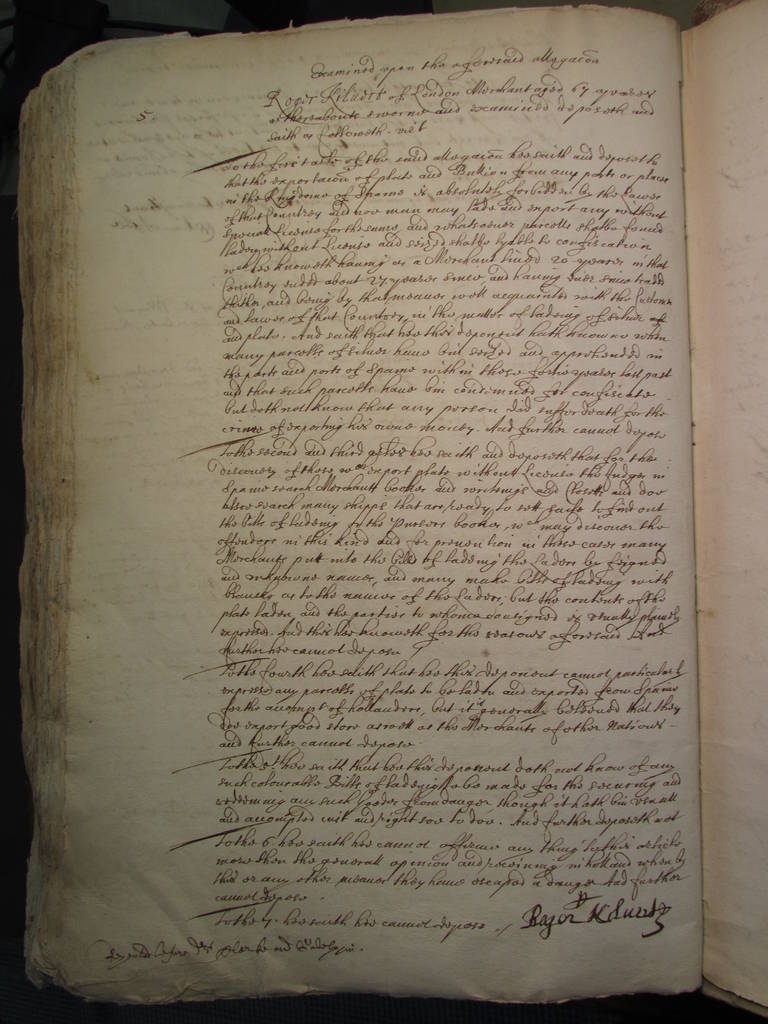 Examined upon the aforesaid allegacōn
5. Roger Kilvert of London Merchant aged 67 yeares
or thereabouts sworne and examined deposeth and
saith as followeth. vizt
To the first arle of the said allegacōn hee saith and deposeth
that the exportacōn of plate and Bullion from any ports or places
in the Kingdome of Spaine is absolutely forbidden by the Lawes
of that Countrey and noe man may lade and export any without
speciall License for the same, and whatsoever parcells shalbe found
laden without License and seized shalbe lyable to confiscation
wch hee knoweth having as a Merchant lived 20 yeares in that
Countrey ended about 27 yeares since, and having ever since traded
thither, and being by that meanes well acquainted with the Customes
and lawes of that Countrey, in the matter of ladeing of silver
and plate. And saith that hee this deponent hath knowne when
many parcells of silver have bin seized and apprehended in
the ports and parts of Spaine within these yeares last past
and that such parcells have bin condemned for confiscate
but doth not know that any person did suffer death for the
crime of exporting his owne money. And further cannot depose
To the second and third arles hee saith and deposeth that for the
discovery of those wch export plate without License the Judges in
Spaine search Merchants bookes and writeings and Closetts and doe
alsoe search many shipps that are ready to sett saile to find out
the bills of ladeing or the Pursers bookes wch may discover the
offendors in this kind and for prevention in these cases many
Merchants putt into the bills of ladeing the Laders by feigned
and unknowne names, and many make bills of ladeing with
blancks as to the names of the Laders, but the contents of the
plate laden, and the parties to whome consigned is usually plainely
expressed. And this hee knoweth for the reasons aforesaid And
further hee cannot depose
To the fourth hee saith that hee this deponent cannot particularly
expresse any parcells of plate to be laden and exported from Spaine
for the accompt of hollanders, but it is generally beleeved that they
doe export good store as well as the Merchants of other Nations
and further cannot depose.
To the 5t hee saith that hee this deponent doth not know of any
such colourable Bills of ladeing to be made for the securing and
redeeming any such goods from danger though it hath bin usuall
and accompted just and right soe to doe. And further deposeth not
To the 6. hee saith hee cannot affirme any thing to this article
more then the generall opinion and in holland when by
this or any other meanes they have escaped a danger And further
cannot depose.
To the 7. hee saith hee cannot depose. Roger Kilvert
before Drs Clarke and